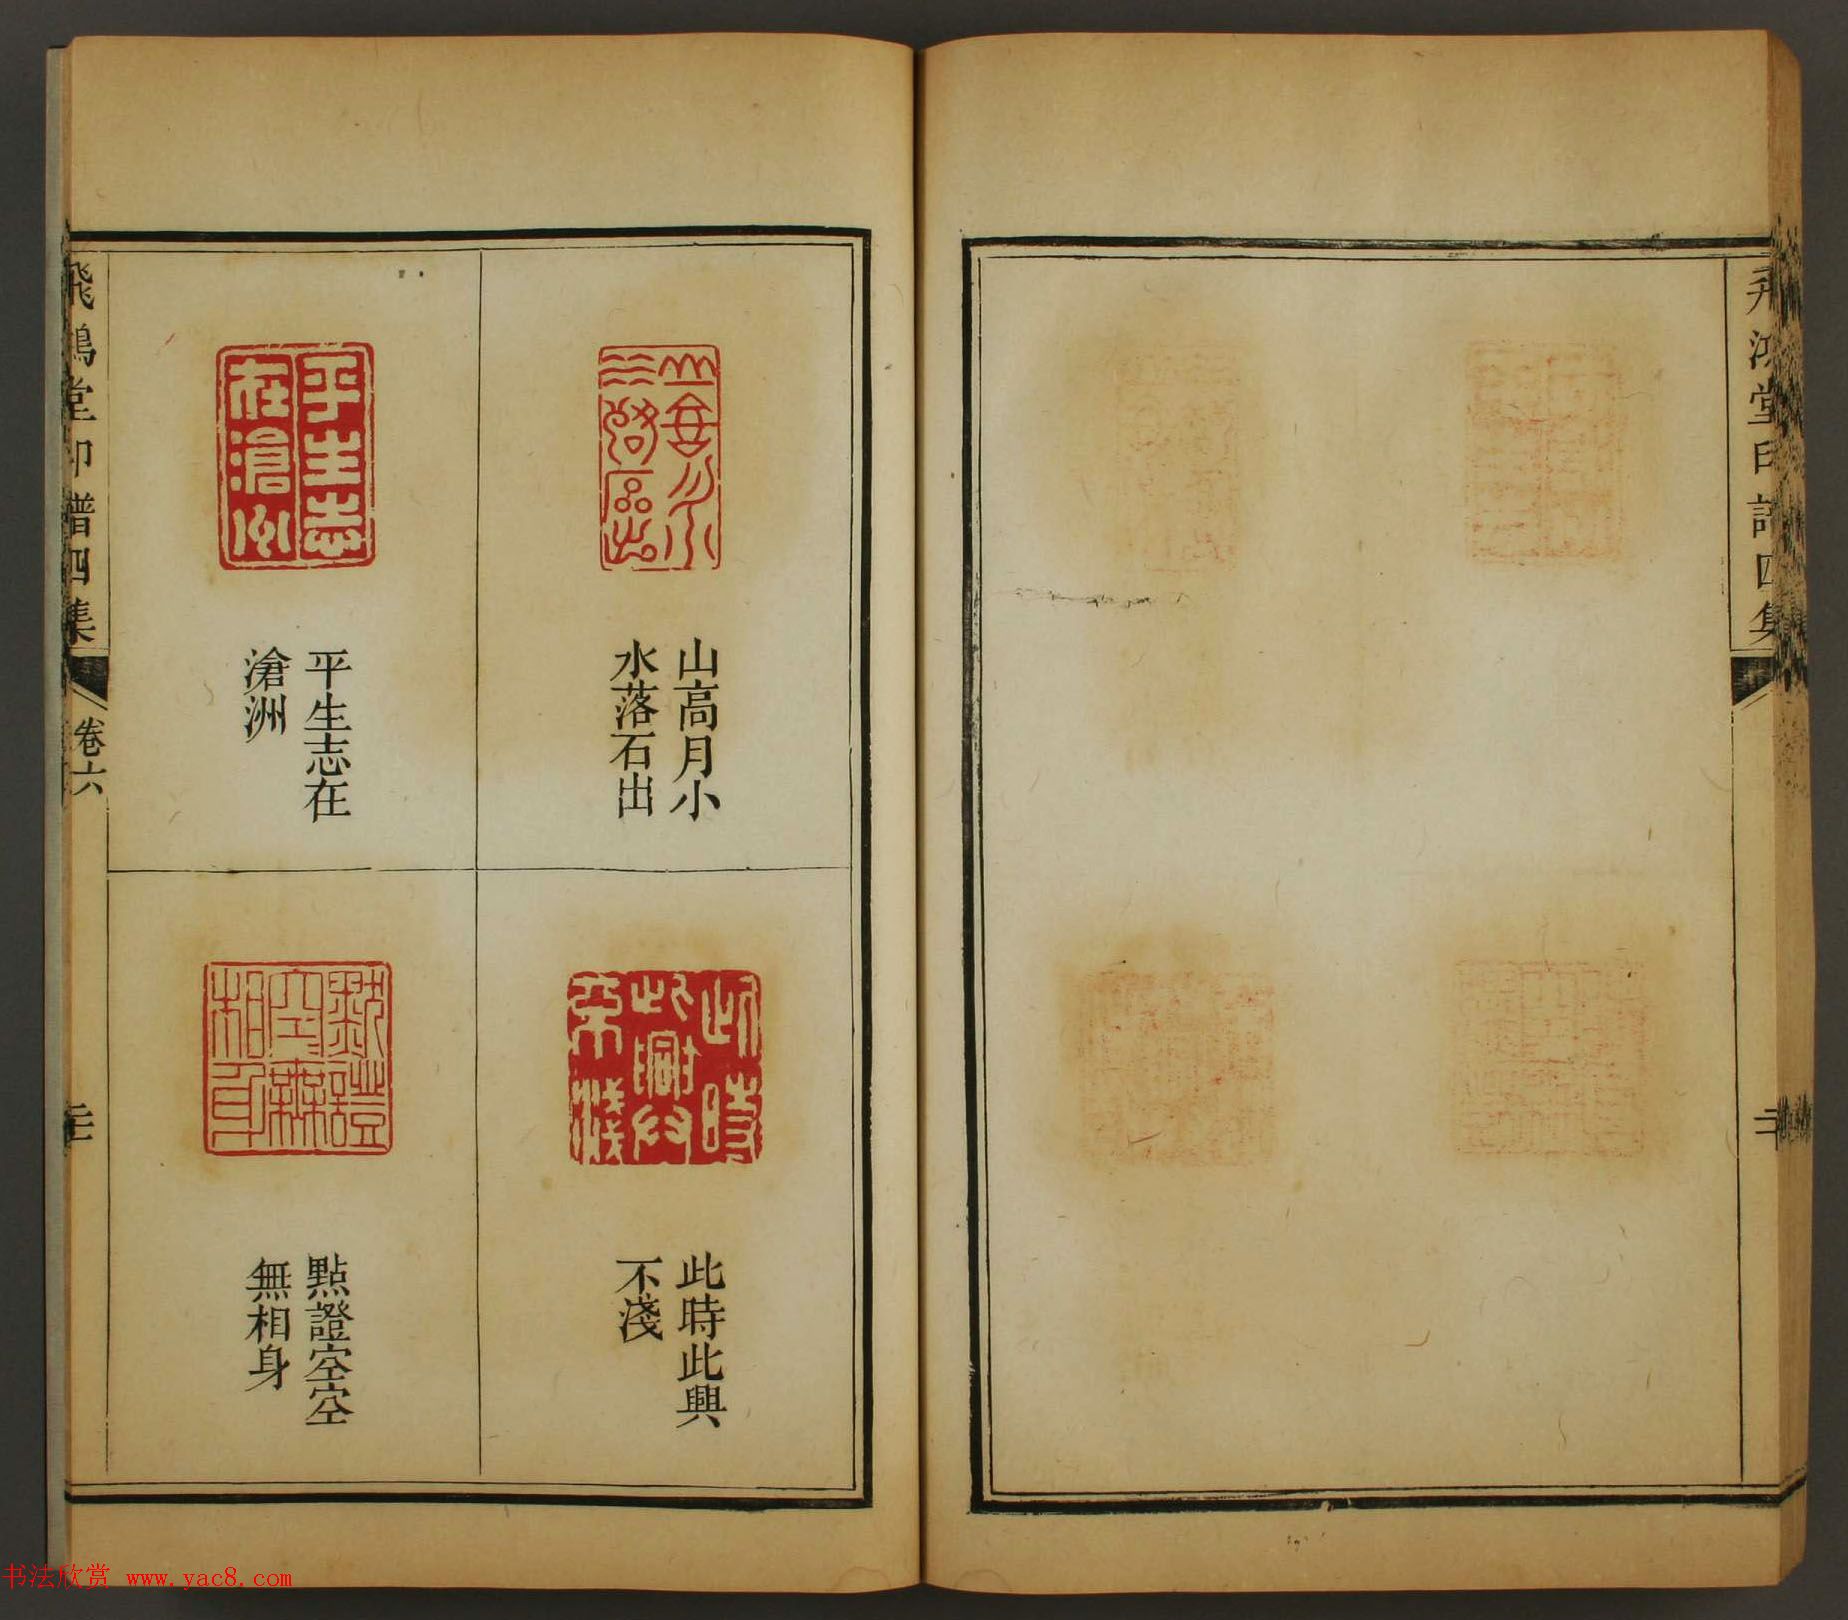 飛鴻堂印譜四集
二十
山高月小
水落石出
山高月小
水落石出
平生志
在滄洲
平生志在
滄洲
此時
此興
不淺
此時此興
不淺
點證
空空無
相身
點證空空
無相身
飛鴻堂印譜四集
卷六
书法欣赏 www.yac8.com